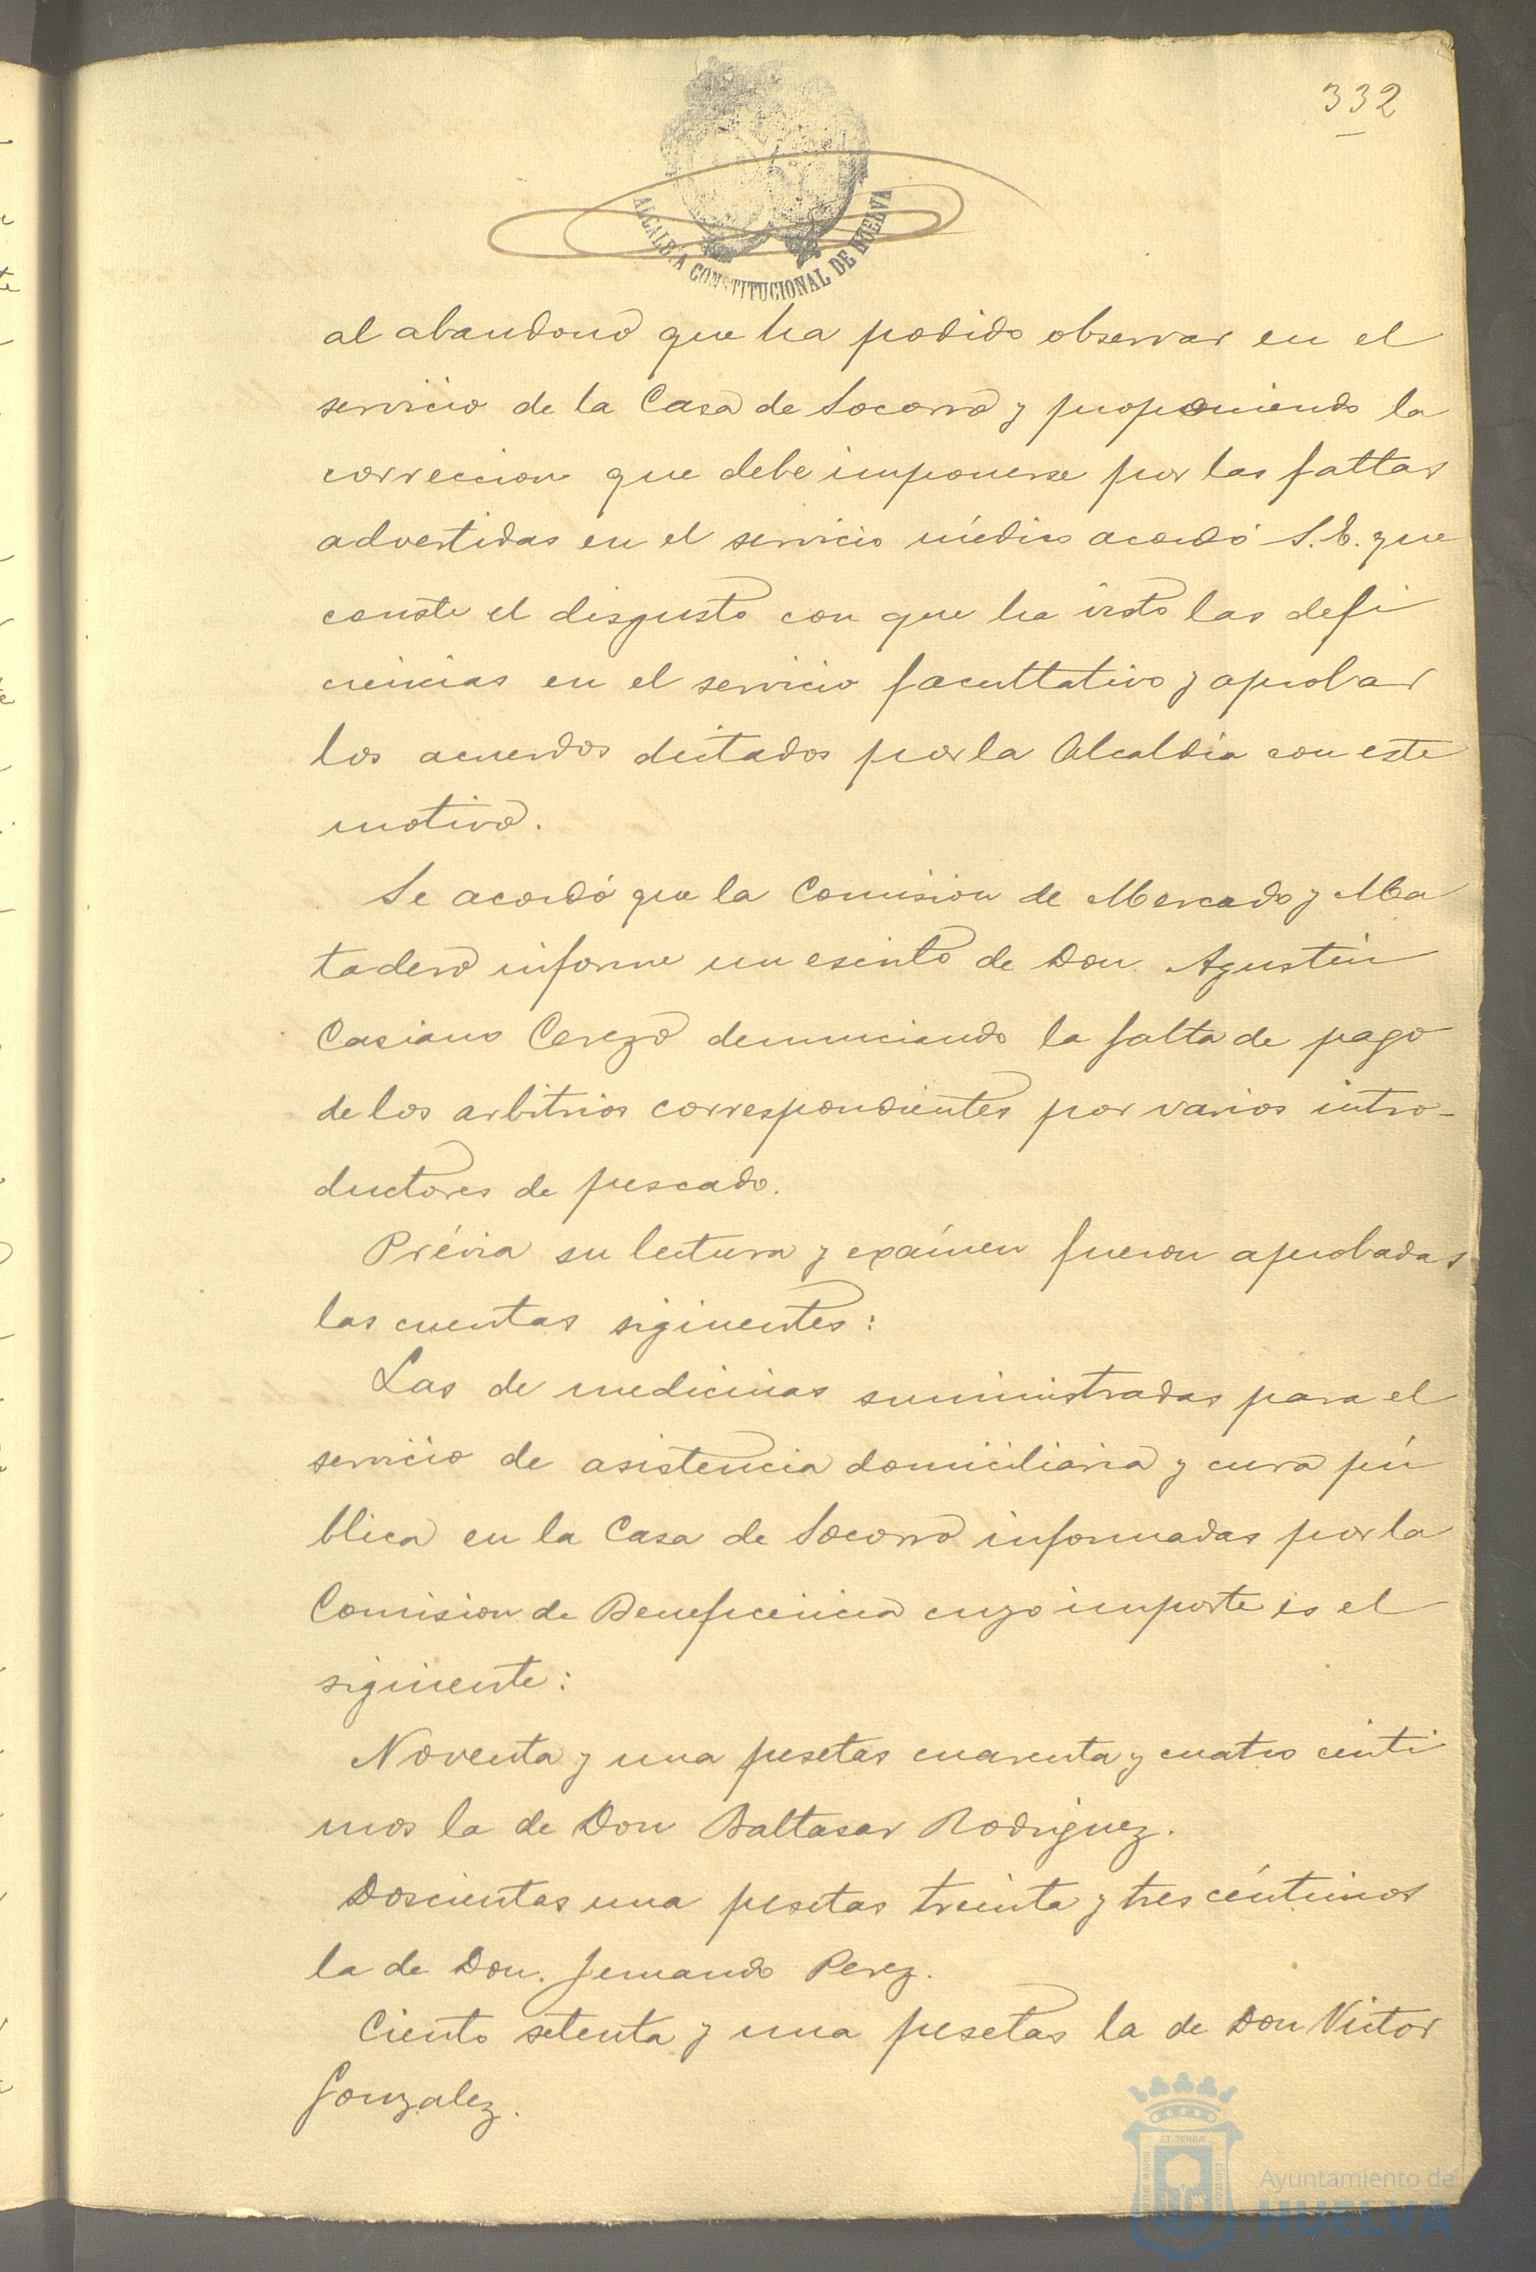 332
ALCALDIA CONSTITUCIONAL DE HUELVA
al abandono que ha podido observar en el
servicio de la Casa de Socorro y proponiendo la
correccion que debe imponerse por las faltas
advertidas en el servicio médico acordó S. E. que
conste el disgusto con que ha visto las defi
ciencias en el servicio facultativo y aprobar
los acuerdos dictados por la Alcaldia con este
motivo.
Se acordó que la Comision de Mercado y Ma
tadero informe un escrito de Don Agustin
Casiano Cerezo denunciando la falta de pago
de los arbitrios correspondientes por varios intro-
ductores de pescado.
Prévia su lectura y exámen fueron aprobadas
las cuentas siguientes:
Las de medicinas suministradas para el
servicio de asistencia domiciliaria y cura pú
blica en la Casa de Socorro informadas por la
Comision de Beneficencia cuyo importe es el
siguiente:
Noventa y una pesetas cuarenta y cuatro cénti
mos la de Don Baltasar Rodriguez.
Doscientas una pesetas treinta y tres céntimos
la de Don. Fernando Perez.
Ciento setenta y una pesetas la de Don Victor
Gonzalez.
Ayuntamiento de
HUELVA